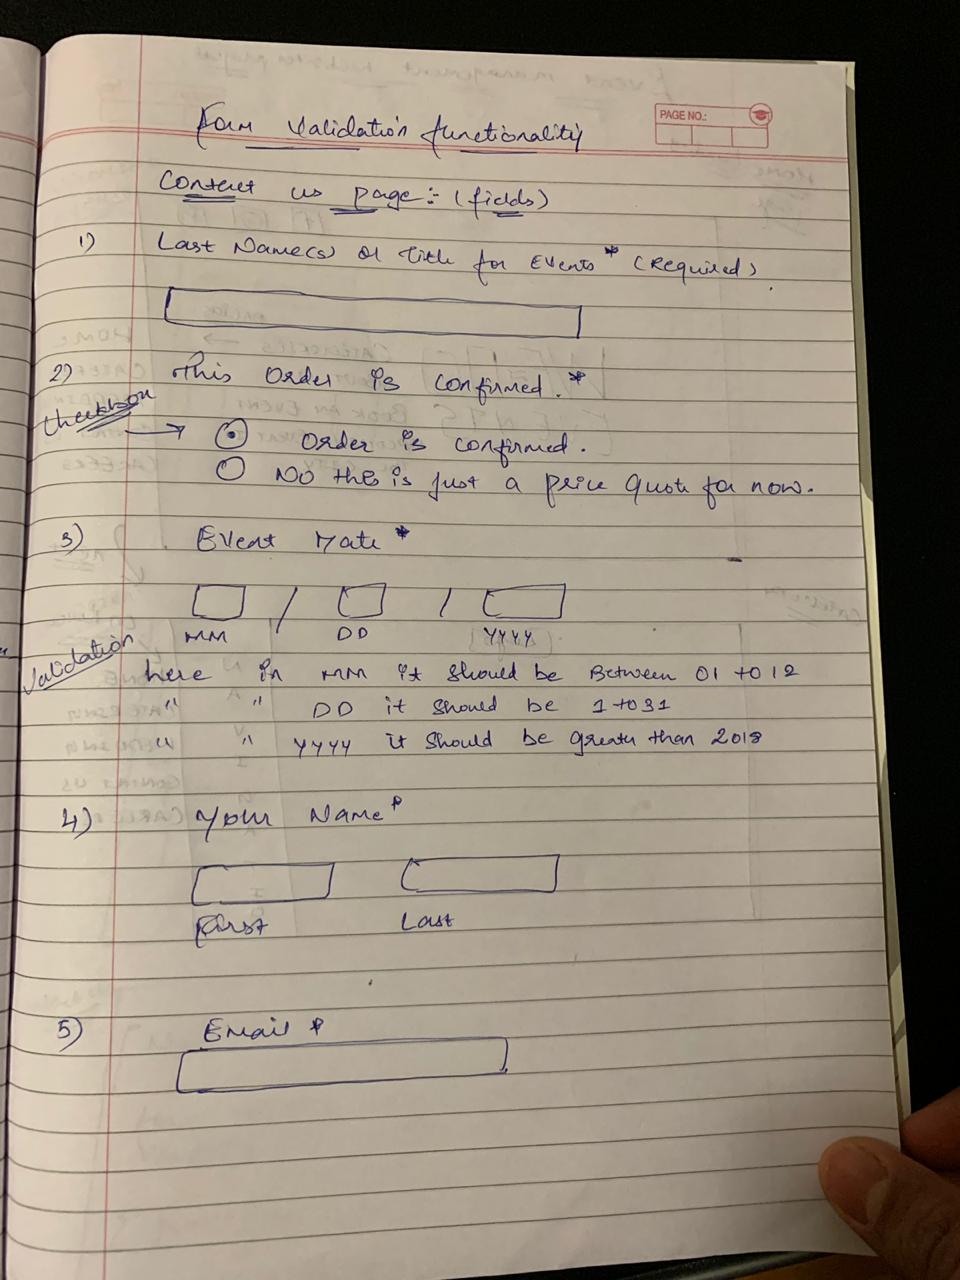 Form Validation functionality
PAGE NO.:
Contact us page:- (fields)
1) Last Name(s) or title for Events * (Required)
2) This Order is confirmed. *
Checkbox → Order is confirmed.
No this is just a price Quote for now.
3) Event Date *
/ /
MM DD YYYY
Validation
here in MM it should be Between 01 to 12
" " DD it should be 1 to 31
" " YYYY it should be greater than 2018
4) Your Name *
First Last
5) Email *